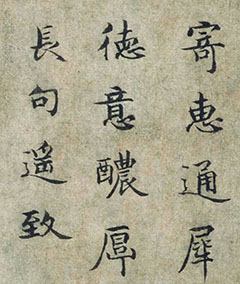 寄惠通犀
徳意醲厚
長句遥致